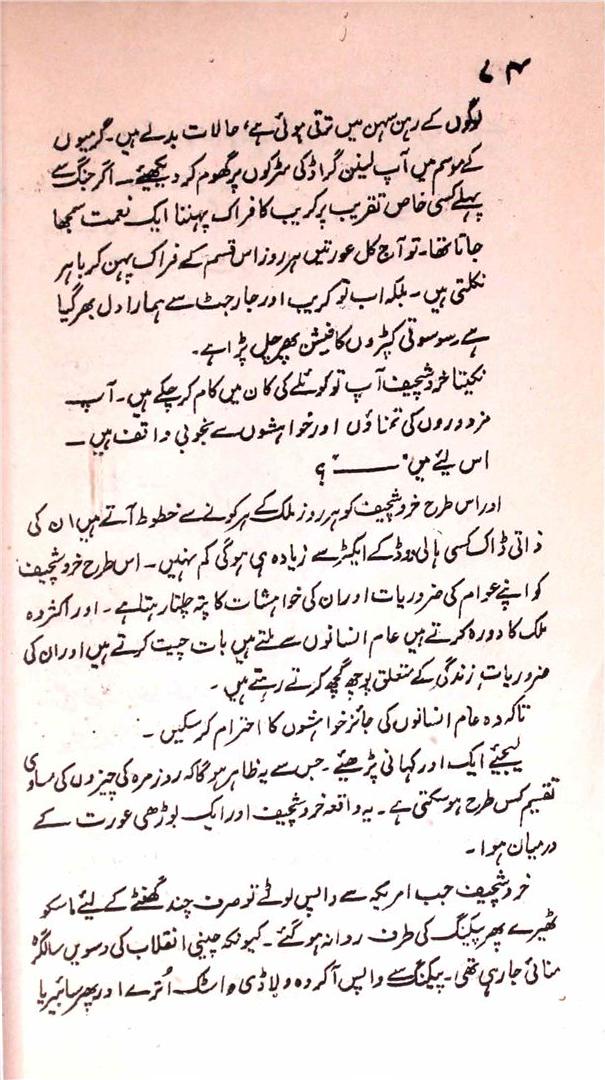 ۷۴
لوگوں کے رہن سہن میں ترقی ہوئی ہے، حالات بدلے ہیں۔ گرمیوں
کے موسم میں آپ لینن گراڈ کی سڑکوں پر گھوم کر دیکھیئے۔ اگر جنگ سے
پہلے کسی خاص تقریب پر کریب کا فراک پہننا ایک نعمت سمجھا
جاتا تھا۔ تو آج کل عورتیں ہر روز اس قسم کے فراک پہن کر باہر
نکلتی ہیں۔ بلکہ اب تو کریب اور جارجٹ سے ہمارا دل بھر گیا
ہے سو سوتی کپڑوں کا فیشن پھر چل پڑا ہے۔
نکیتا خروشچیف آپ تو کوئلے کی کان میں کام کر چکے ہیں۔ آپ
مزدوروں کی تمناؤں اور خواہشوں سے بخوبی واقف ہیں۔
اس لیئے میں ‘——’ ؟
اور اس طرح خروشچیف کو ہر روز ملک کے ہر کونے سے خطوط آتے ہیں ان کی
ذاتی ڈاک کسی ہالی ووڈ کے ایکٹر سے زیادہ ہی ہوگی کم نہیں۔ اس طرح خروشچیف
کو اپنے عوام کی ضروریات اور ان کی خواہشات کا پتہ چلتا رہتا ہے۔ اور اکثر وہ
ملک کا دورہ کرتے ہیں عام انسانوں سے ملتے ہیں بات چیت کرتے ہیں اور ان کی
ضروریات زندگی کے متعلق پوچھ گچھ کرتے رہتے ہیں۔
تاکہ وہ عام انسانوں کی جائز خواہشوں کا احترام کر سکیں۔
لیجیئے ایک اور کہانی پڑھیئے۔ جس سے یہ ظاہر ہوگا کہ روزمرہ کی چیزوں کی مساوی
تقسیم کس طرح ہو سکتی ہے۔ یہ واقعہ خروشچیف اور ایک بوڑھی عورت کے
درمیان ہوا۔
خروشچیف جب امریکہ سے واپس لوٹے تو صرف چند گھنٹے کے لیئے ماسکو
ٹھیرے پھر پیکنگ کی طرف روانہ ہو گئے۔ کیونکہ چینی انقلاب کی دسویں سالگرہ
منائی جا رہی تھی۔ پیکنگ سے واپس آکر وہ ولاڈی واسٹک اُترے اور پھر سائبیریا